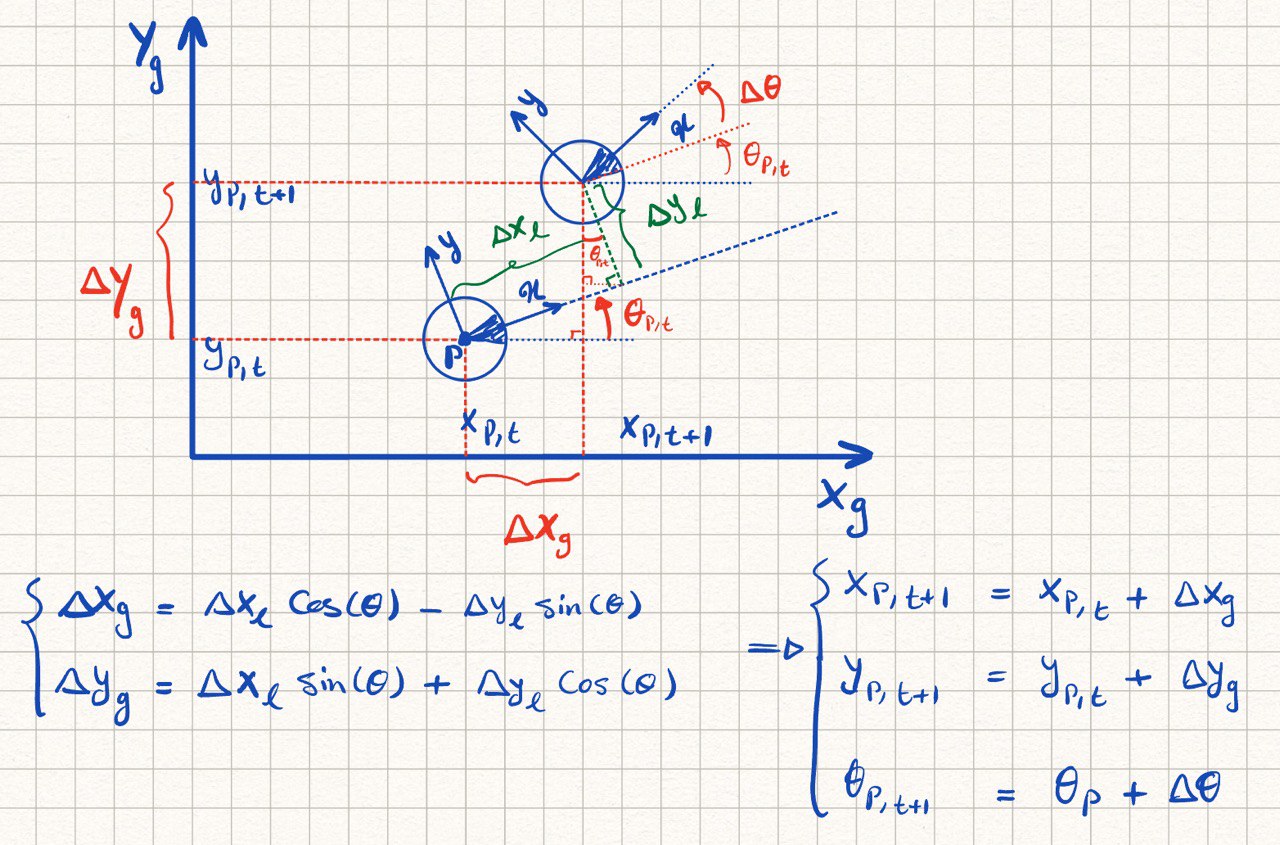 Y_g
Δθ
y
x
θ_P,t
y_P,t+1
Δy_l
Δx_l
y
θ_P,t
ΔY_g
x
θ_P,t
P
y_P,t
x_P,t
x_P,t+1
X_g
ΔX_g
Δx_g = Δx_l Cos(θ) - Δy_l sin(θ)
Δy_g = Δx_l sin(θ) + Δy_l Cos(θ)
⇒
x_P,t+1 = x_P,t + Δx_g
y_P,t+1 = y_P,t + Δy_g
θ_P,t+1 = θ_P + Δθ